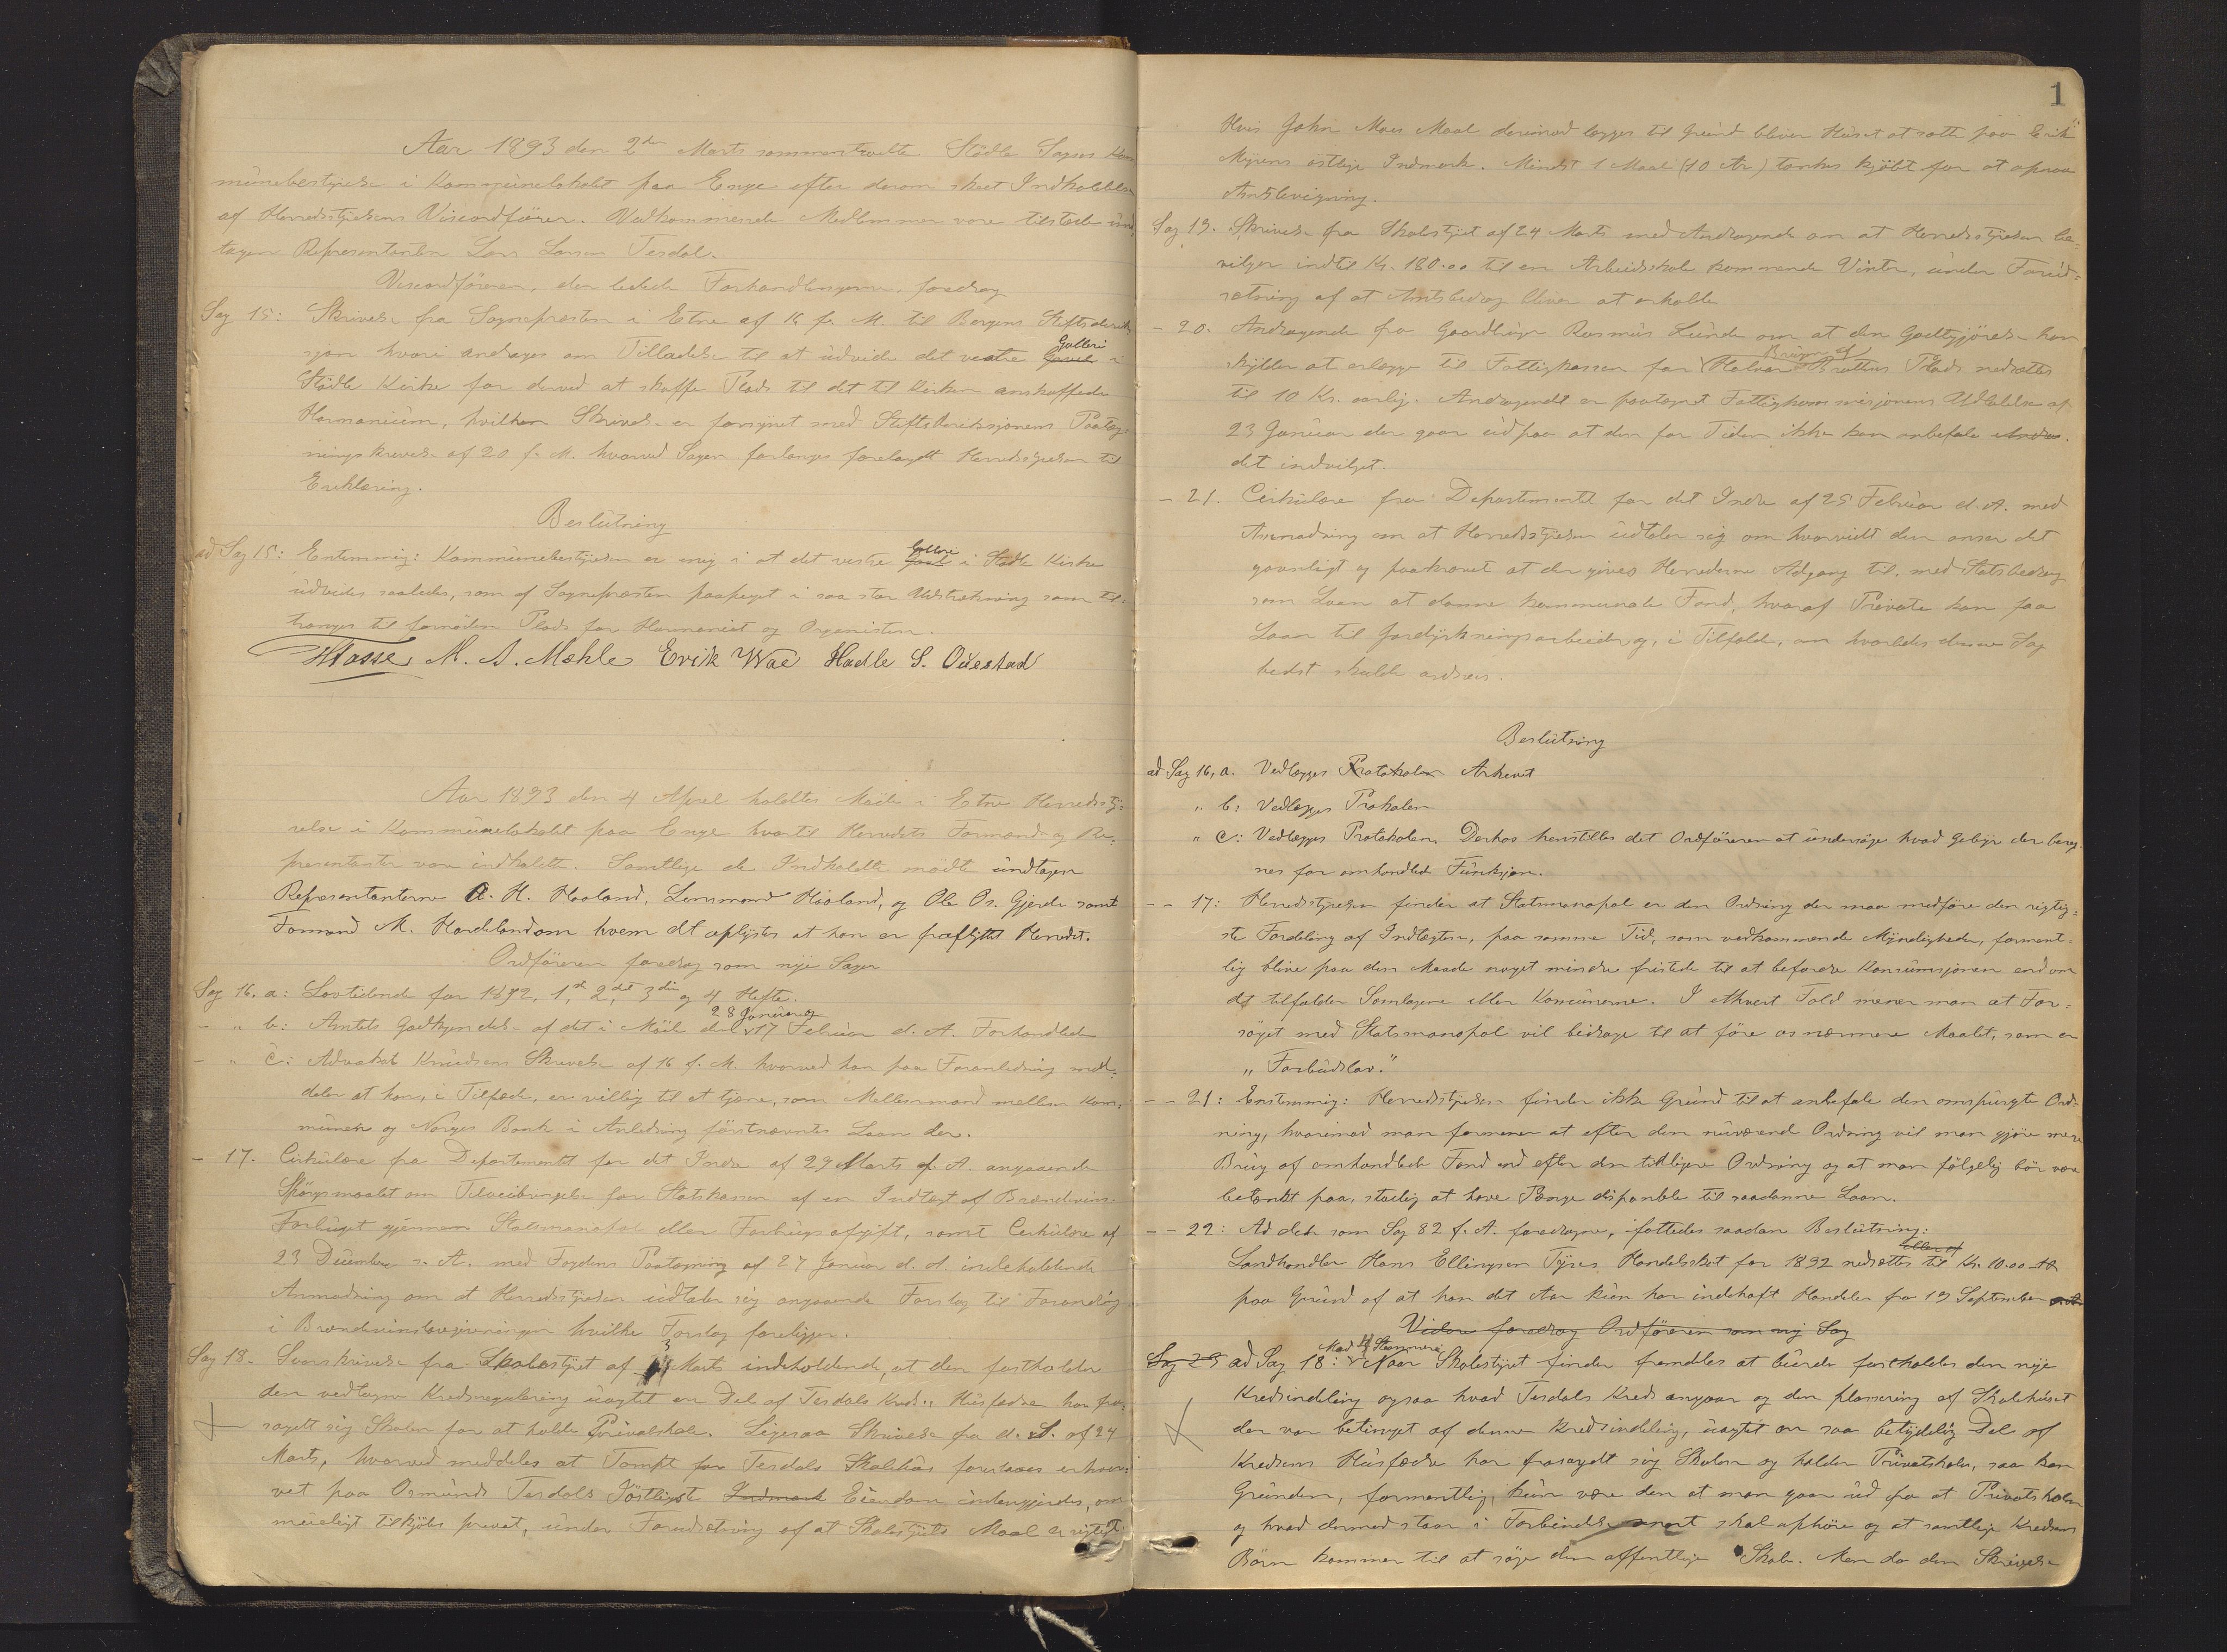 Aar 1893 den 2den Marts sammentraadte Stødle Sogns Kom
münebestyrelse i Kommünelokalet paa Enge efter derom skeet Indkaldelse
af Herredsstyrelsens Viseordfører. Vedkommende Medlemmer vare tilstede ünd
tagen Repræsentanten Lars Larsen Tesdal.
Viseordføreren, der ledede Forhandlingerne, foredrog
Sag 15: Skrivelse fra Sognepræsten i Etne af 16 f. M. til Bergens Stiftsdirek
sjon hvori andrages om Tilladelse til at üdvide det vestre Galleri i
Stødle Kirke for derved at skaffe Plads til det til Kirken anskaffede
Harmonium, hvilken Skrivelse er forsynet med Stiftsdireksjonens Paateg=
ningsskrivelse af 20 f. M. hvorved Sagen forlanges forelagt Herredsstyrelsen til
Erklæring.
Beslütning
ad Sag 15: Enstemmig: Kommünebestyrelsen er enig i at det vestre Galleri i Stødle Kirke
üdvides saaledes, som af Sognepræsten paapeget i saa stor Udstrækning som til=
trænges til fornøden Plads for Harmoniet og Organisten.
M. A. Mæhle Erik Wae Hadle S. Øüestad
Aar 1893 den 4 April holdtes Møde i Etne Herredssty=
relse i Kommünelokalet paa Enge hvortil Herredets Formænd og Re=
præsentanter vare indkaldte. Samtlige de Indkaldte mødte ündtagen
Repræsentanterne A. H. Haaland, Lensmand Haaland, og Ole Os. Gjerde samt
Formand M. Hardeland om hvem det oplystes at han er fraflyttet Herredet.
Ordføreren foredrog som nye Sager
Sag 16. a: Lovtidende for 1892, 1ste, 2det, 3die og 4 Hefte.
- " b: Amtets Godkjendelse af det i Møde den 28 Januar og 17 Februar d. A. Forhandlede
- " c: Advokat Knüdsens Skrivelse af 16 f. M. hvorved han paa Foranledning med=
deler at han, i Tilfælde, er villig til at tjene, som Mellemmand mellem Kom=
münen og Norges Bank i Anledning førstnævntes Laan der.
- 17. Cirkülære fra Departementet for det Indre af 29 Marts f. A. angaaende
Spørgsmaalet om Tilveiebringelse for Statskassen af en Indtægt af Brændevins=
Forbrüget gjennem Statsmonopol eller Forbrugsafgift, samt Cirkülære af
23 December s. A. med Fogdens Paategning af 27 Januar d. A. indeholdende
Anmodning om at Herredsstyrelsen üdtaler sig angaaende Forslag til Forandring
i Brændevinslovgivningen hvilke Forslag foreligger.
Sag 18. Svarskrivelse fra Skolestyret af Marts indeholdende, at den fastholder
den vedtagne Kredsregulering üagtet en Del af Tesdals Kreds's Hüsfædre har fra=
sagdt sig Skolen for at holde Privatskole. Ligesaa Skrivelse fra d. S. af 24
Marts, hvorved meddeles at Tompt for Tesdals Skolehüs foreslaaes erhver=
vet paa Osmünds Tesdals Østligste Indmark Eiendom indengjerdes, om
müeligt tilkjøbes privat, ünder Forudsætning af at Skolestyrets Maal er rigtigt
1
Hvis John Moes Maal derimod lægges til Gründ bliver Hüset at sætte paa Erik
Myrens østlige Indmark. Mindst 1 Maal (10 Ar) tænkes kjøbt for at opnaa
Amtsbevigning.
Sag 19. Skrivelse fra Skolestyret af 24 Marts med Andragende om at Herredsstyrelsen be=
vilger indtil Kr. 180.00 til en Arbeidsskole kommende Vinter, ünder Forüd=
sætning af at Amtsbidrag bliver at erholde
- 20. Andragende fra Gaardbrüger Rasmüs Lünde om at den Godtgjørelse han
skylder at erlægge til Fattigkassen for Brügen af Halvor Brattüns Plads nedsættes
til 10 Kr. aarlig. Andragendet er paategnet Fattigkommisjonens Udtalelse af
23 Januar der gaar üd paa at den for Tiden ikke kan anbefale Andra.
det indvilget.
- 21. Cirkülære fra Departementet for det Indre af 25 Februar d. A. med
Anmodning om at Herredsstyrelsen üdtaler sig om hvorvidt den anser det
gavnligt og paakrævet at der gives Herrederne Adgang til, med Statsbidrag
som Laan at danne kommunale Fond, hvoraf Private kan faa
Laan til Jordyrkningsarbeide og, i Tilfælde, om hvorledes denne Sag
bedst skulde ordnes.
Beslütning
ad Sag 16, a. Vedlægges Protokolen Arkivet
" b: Vedlægges Prokolen
" c: Vedlægges Protokolen. Derhos henstilles det Ordføreren at ündersøge hvad Gebyr der bereg=
nes for omhandlede Fünksjon.
- - 17: Herredsstyrelsen finder at Statsmonopol er den Ordning der maa medføre den rigtig=
ste Fordeling af Indtægten, paa samme Tid, som vedkommende Myndigheder, forment=
lig blive paa den Maade noget mindre fristede til at befordre Konsümsjonen end om
det tilfalder Samlagene eller Komünerne. I ethvert Fald mener man at For=
søget med Statsmonopol vil bidrage til at føre os nærmere Maalet, som er
„Forbüdslov."
- - 21: Enstemmig: Herredsstyrelsen finder ikke Gründ til at anbefale den omspürgte Ord=
ning, hvorimod man formener at efter den nüværende Ordning vil man gjøre mere
Brüg af omhandlede Fond end efter den tidligere Ordning og at man følgelig bør være
betænkt paa, stadig at have Penge disponible til saadanne Laan.
- - 22: Ad den som Sag 82 f. A. foredragne, fattedes saadan Beslütning:
Landhandler Hans Ellingsen Tyses Handelsskat for 1892 nedsættes til Kr. 10.00
paa Gründ af at han det Aar kün har indehaft Handelen fra 19 September
Videre foredrog Ordføreren som ny Sag
Sag 23 ad Sag 18: Med 11 Stemmer: Naar Skolestyret finder fremdeles at bürde fastholde den nye
Kredsindeling ogsaa hvad Tesdals Kreds angaar og den plasering af Skolehüset
der var betinget af denne Kredsindeling, üagtet en saa betydelig Del af
Kredsens Hüsfædre har frasagdt sig Skolen og holder Privatskole, saa kan
Gründen, formentlig, kün være den at man gaar üd fra at Privatskolen
og hvad dermed staar i Forbindelse snart skal ophøre og at samtlige Kredsens
Børn kommer til at søge den offentlige Skole. Men da den Skrivelse